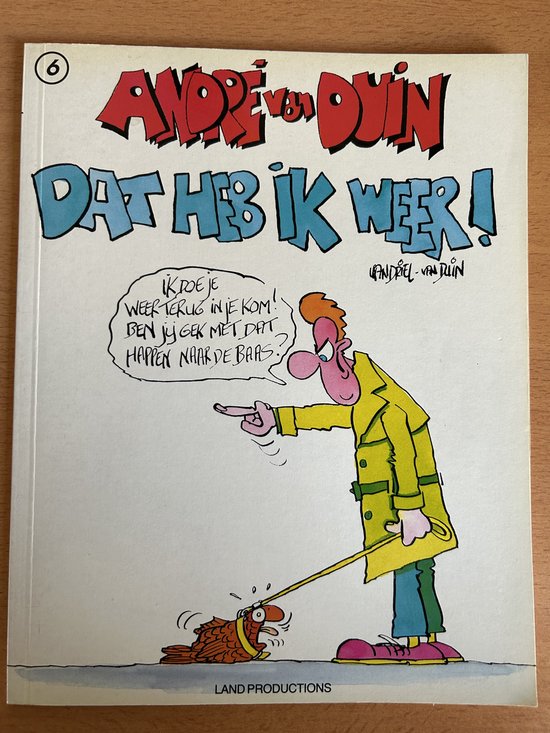 6
ANDRÉ van DUIN
DAT HEB IK WEER!
VAN DRIEL - VAN DUIN
IK DOE JE
WEER TERUG IN JE KOM!
BEN JIJ GEK MET DAT
HAPPEN NAAR DE BAAS?
LAND PRODUCTIONS